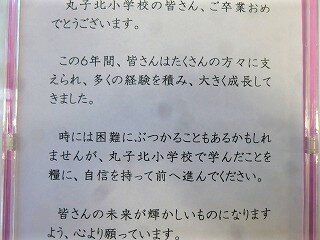 丸子北小学校の皆さん、ご卒業おめ
でとうございます。
この6年間、皆さんはたくさんの方々に支
えられ、多くの経験を積み、大きく成長して
きました。
時には困難にぶつかることもあるかもしれ
ませんが、丸子北小学校で学んだことを
糧に、自信を持って前へ進んでください。
皆さんの未来が輝かしいものになります
よう、心より願っています。